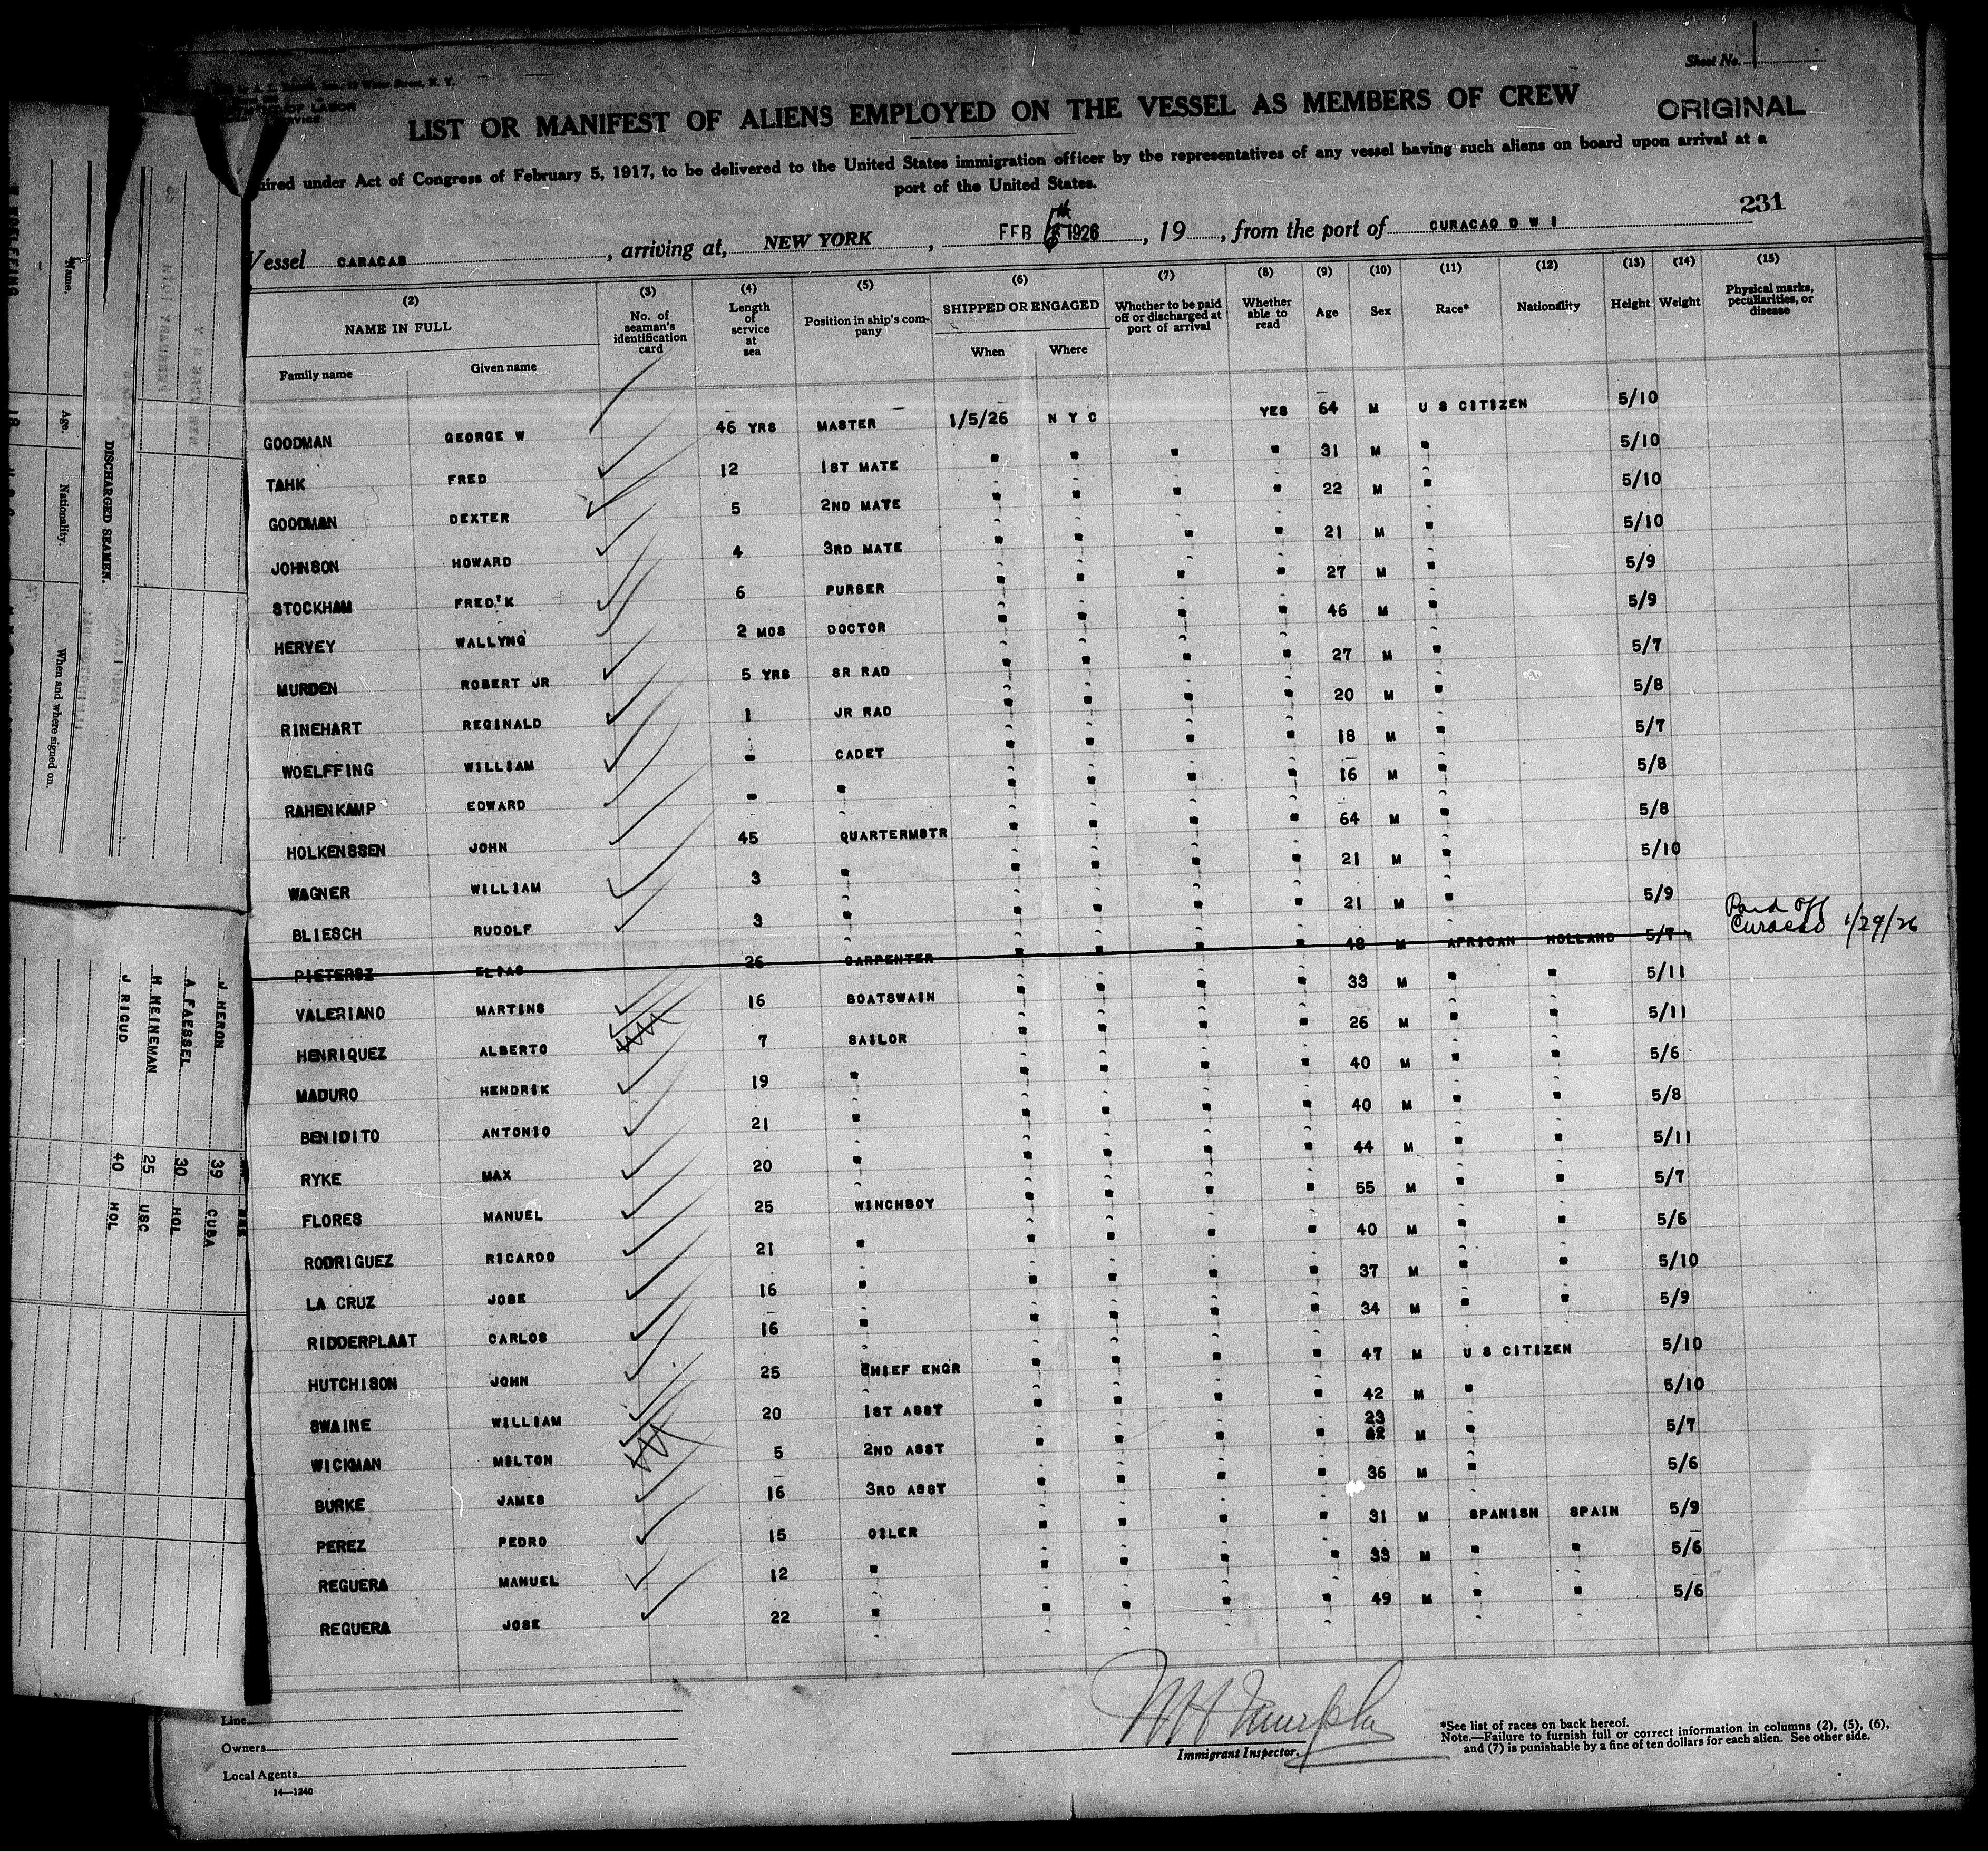 Sheet No. 1
LIST OR MANIFEST OF ALIENS EMPLOYED ON THE VESSEL AS MEMBERS OF CREW
ORIGINAL
uired under Act of Congress of February 5, 1917, to be delivered to the United States immigration officer by the representatives of any vessel having such aliens on board upon arrival at a
port of the United States.
231
Vessel CARACAS, arriving at, NEW YORK, FEB 5th 1926, 19, from the port of CURACAO D W I
(2) (3) (4) (5) (6) (7) (8) (9) (10) (11) (12) (13) (14) (15)
NAME IN FULL
Family name Given name
No. of seaman's identification card
Length of service at sea
Position in ship's company
SHIPPED OR ENGAGED
When Where
Whether to be paid off or discharged at port of arrival
Whether able to read
Age Sex Race* Nationality Height Weight
Physical marks, peculiarities, or disease
GOODMAN GEORGE W 46 YRS MASTER 1/5/26 N Y C YES 64 M U S CITIZEN 5/10
TAHK FRED 12 1ST MATE " " " " 31 M " 5/10
GOODMAN DEXTER 5 2ND MATE " " " " 22 M " 5/10
JOHNSON HOWARD 4 3RD MATE " " " " 21 M " 5/10
STOCKHAM FRED'K 6 PURSER " " " " 27 M " 5/9
HERVEY WALLYNG 2 MOS DOCTOR " " " " 46 M " 5/9
MURDEN ROBERT JR 5 YRS SR RAD " " " " 27 M " 5/7
RINEHART REGINALD 1 JR RAD " " " " 20 M " 5/8
WOELFFING WILLIAM - CADET " " " " 18 M " 5/7
RAHENKAMP EDWARD - " " " " " 16 M " 5/8
HOLKENSSEN JOHN 45 QUARTERMSTR " " " " 64 M " 5/8
WAGNER WILLIAM 3 " " " " " 21 M " 5/10
BLIESCH RUDOLF 3 " " " " " 21 M " 5/9
PIETERSZ ELIAS 26 CARPENTER " " " " 48 M AFRICAN HOLLAND 5/7 Paid off Curacao 1/29/26
VALERIANO MARTINS 16 BOATSWAIN " " " " 33 M " " 5/11
HENRIQUEZ ALBERTO 7 SAILOR " " " " 26 M " " 5/11
MADURO HENDRIK 19 " " " " " 40 M " " 5/6
BENIDITO ANTONIO 21 " " " " " 40 M " " 5/8
RYKE MAX 20 " " " " " 44 M " " 5/11
FLORES MANUEL 25 WINCHBOY " " " " 55 M " " 5/7
RODRIGUEZ RICARDO 21 " " " " " 40 M " " 5/6
LA CRUZ JOSE 16 " " " " " 37 M " " 5/10
RIDDERPLAAT CARLOS 16 " " " " " 34 M " " 5/9
HUTCHISON JOHN 25 CHIEF ENGR " " " " 47 M U S CITIZEN 5/10
SWAINE WILLIAM 20 1ST ASST " " " " 42 M " 5/10
WICKMAN MILTON 5 2ND ASST " " " " 23 M " 5/7
BURKE JAMES 16 3RD ASST " " " " 36 M " 5/6
PEREZ PEDRO 15 OILER " " " " 31 M SPANISH SPAIN 5/9
REGUERA MANUEL 12 " " " " " 33 M " " 5/6
REGUERA JOSE 22 " " " " " 49 M " " 5/6
Line
Owners
Local Agents
14—1240
Immigrant Inspector.
*See list of races on back hereof.
Note.—Failure to furnish full or correct information in columns (2), (5), (6),
and (7) is punishable by a fine of ten dollars for each alien. See other side.
DISCHARGED SEAMEN.
Name. Age. Nationality. When and where signed on.
J HERON 39 CUBA
A FAESSEL 30 HOL
H HEINEMAN 25 USC
J RIGUD 40 HOL